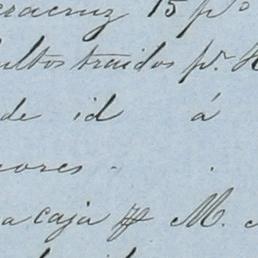 eracruz 15 p.º
ultos traidos p.r
de id á
ores
a caja M.